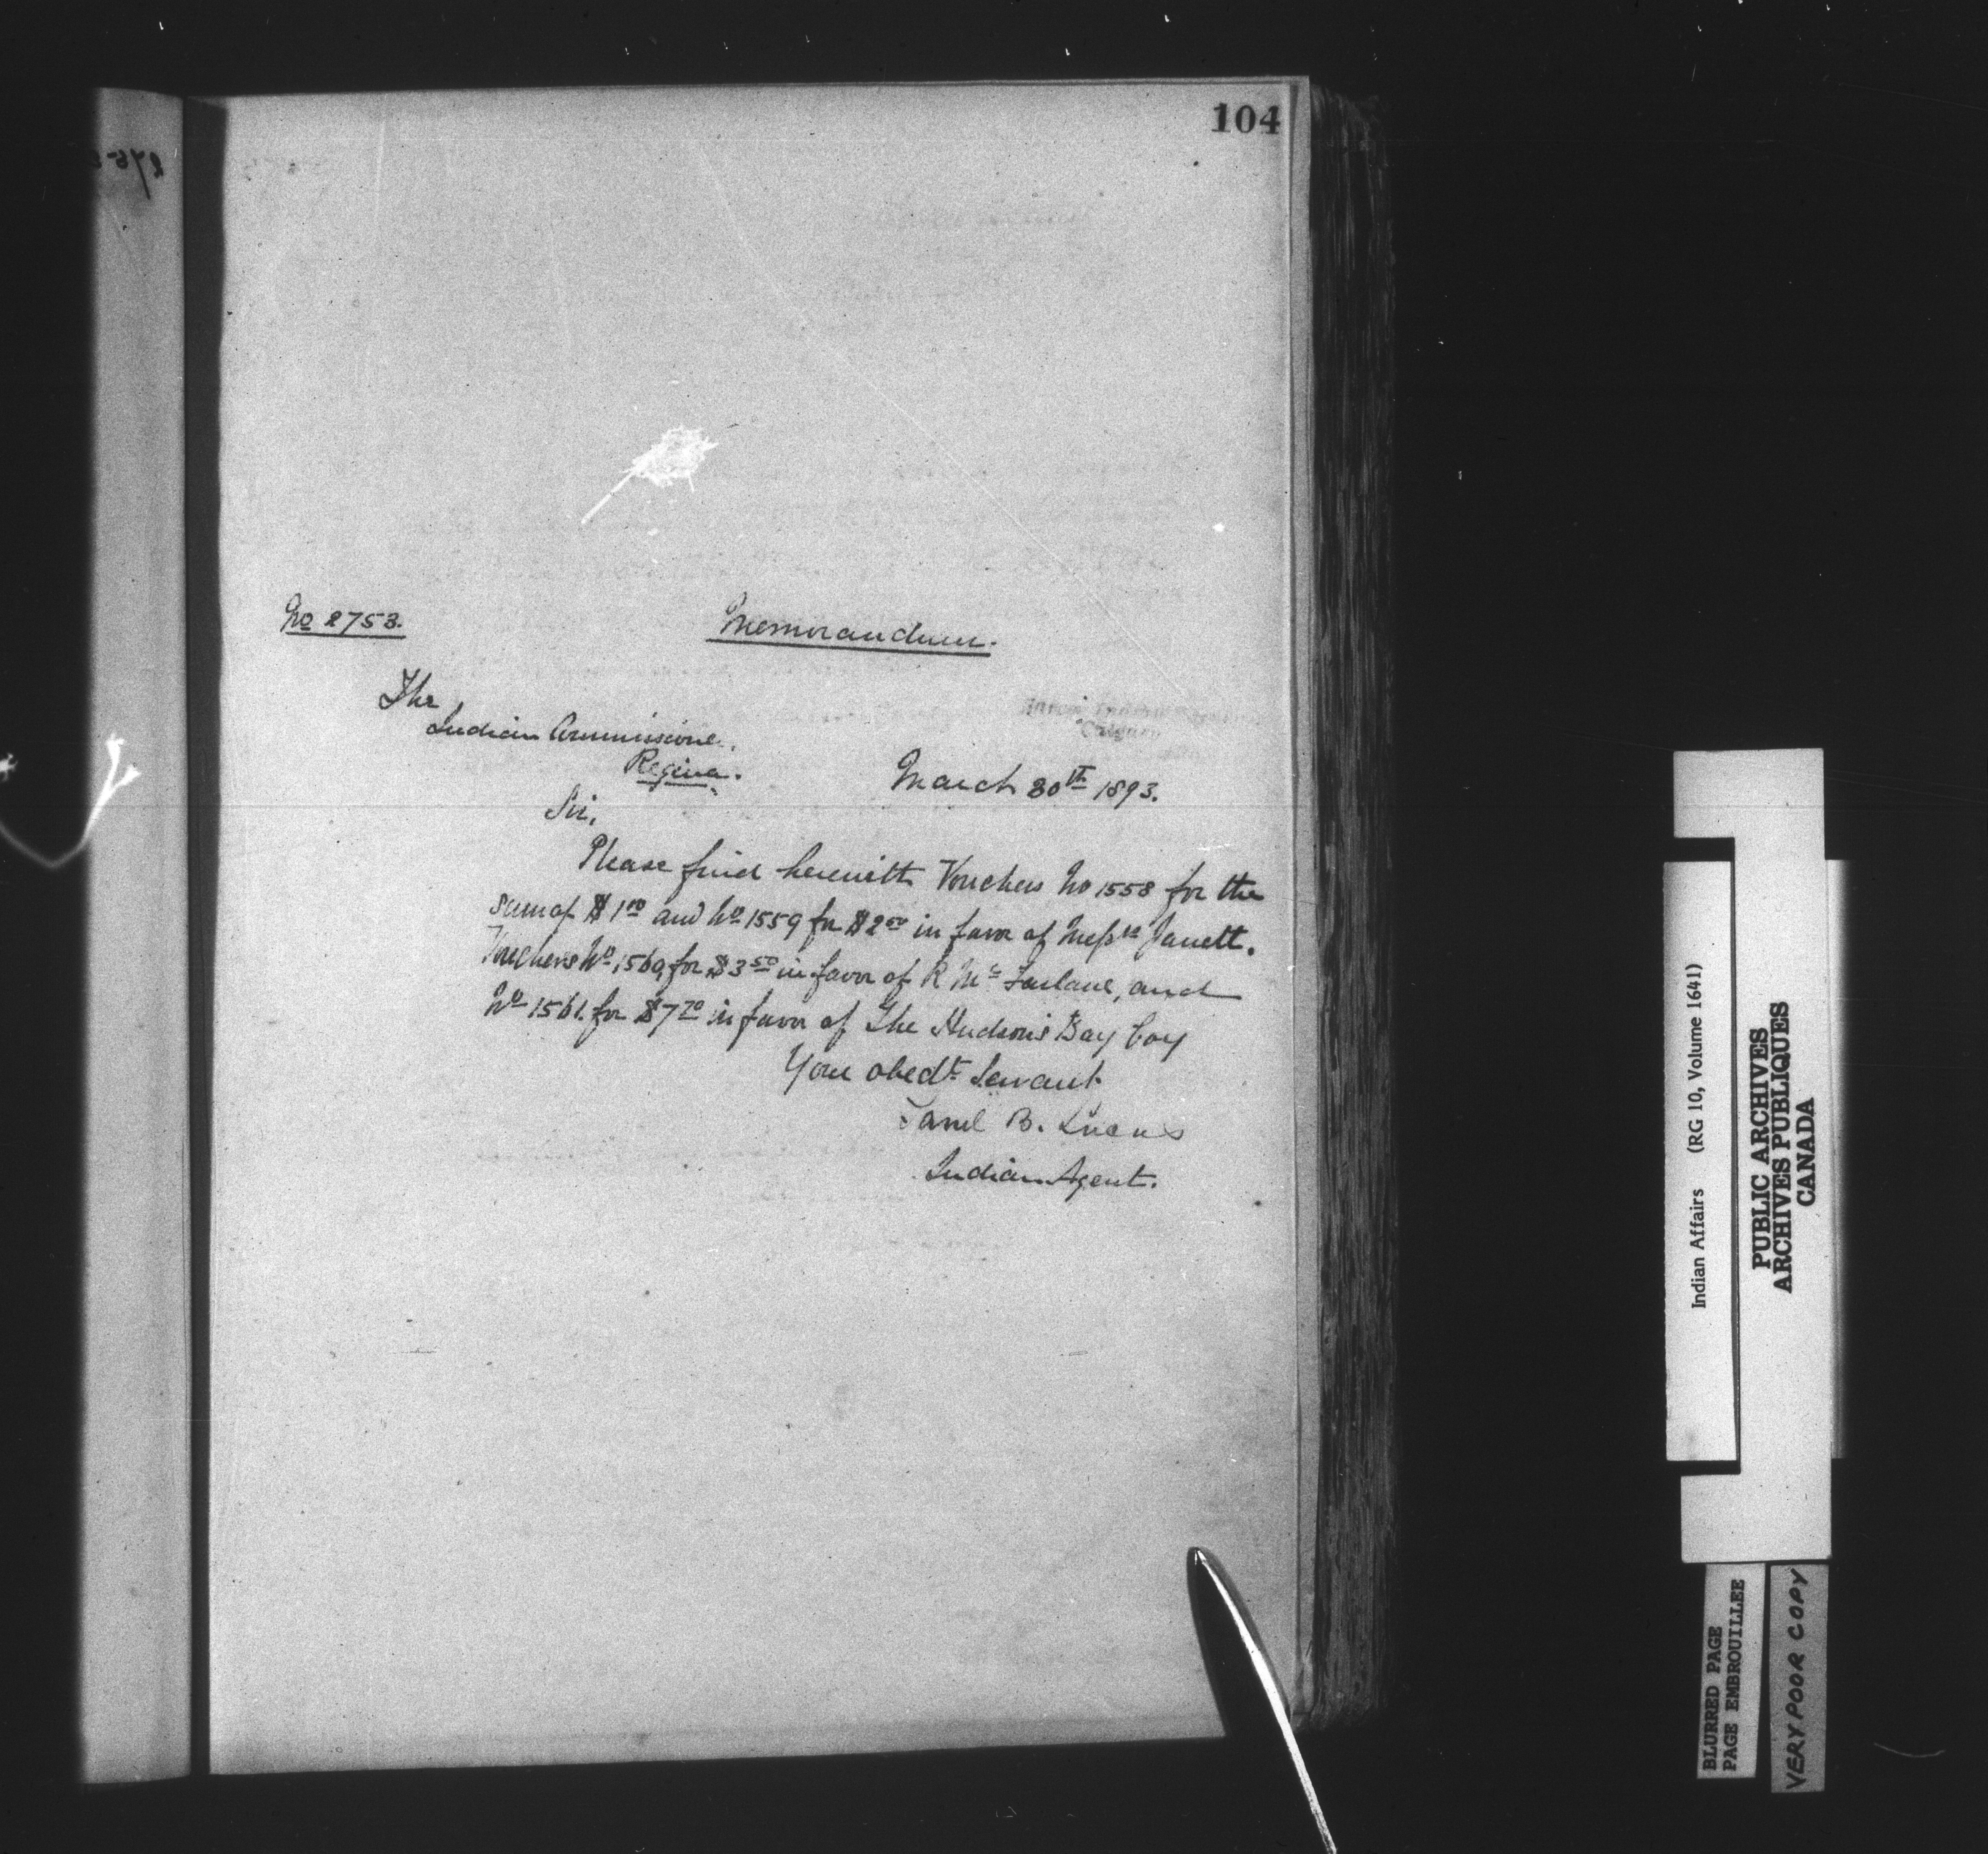 104
No 2753.
Memorandum.
The
Indian Commissioner.
Regina.
Calgary
March 30th 1893.
Sir,
Please find herewith Vouchers No 1558 for the
sum of $1 00 and No 1559 for $2 50 in favor of Messrs Jarrett.
Vouchers No 1560, for $3 50 in favor of R Mc Farlane, and
No 1561. for $7 70 in favor of The Hudson's Bay Coy
Your obedt Servant
B. Lucas
Indian Agent.
Indian Affairs (RG 10, Volume 1641)
PUBLIC ARCHIVES
ARCHIVES PUBLIQUES
CANADA
BLURRED PAGE
PAGE EMBROUILLEE
VERY POOR COPY